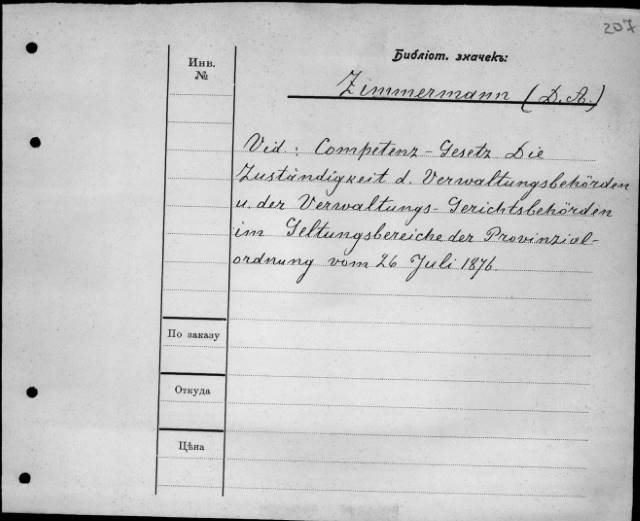 207
Библіот. значекъ:
Инв.
№
Zimmermann (D. A.)
Vid.: Competenz-Gesetz Die
Zuständigkeit d. Verwaltungsbehörden
u. der Verwaltungs-Gerichtsbehörden
im Geltungsbereiche der Provinzial-
ordnung vom 26 Juli 1876.
По заказу
Откуда
Цѣна